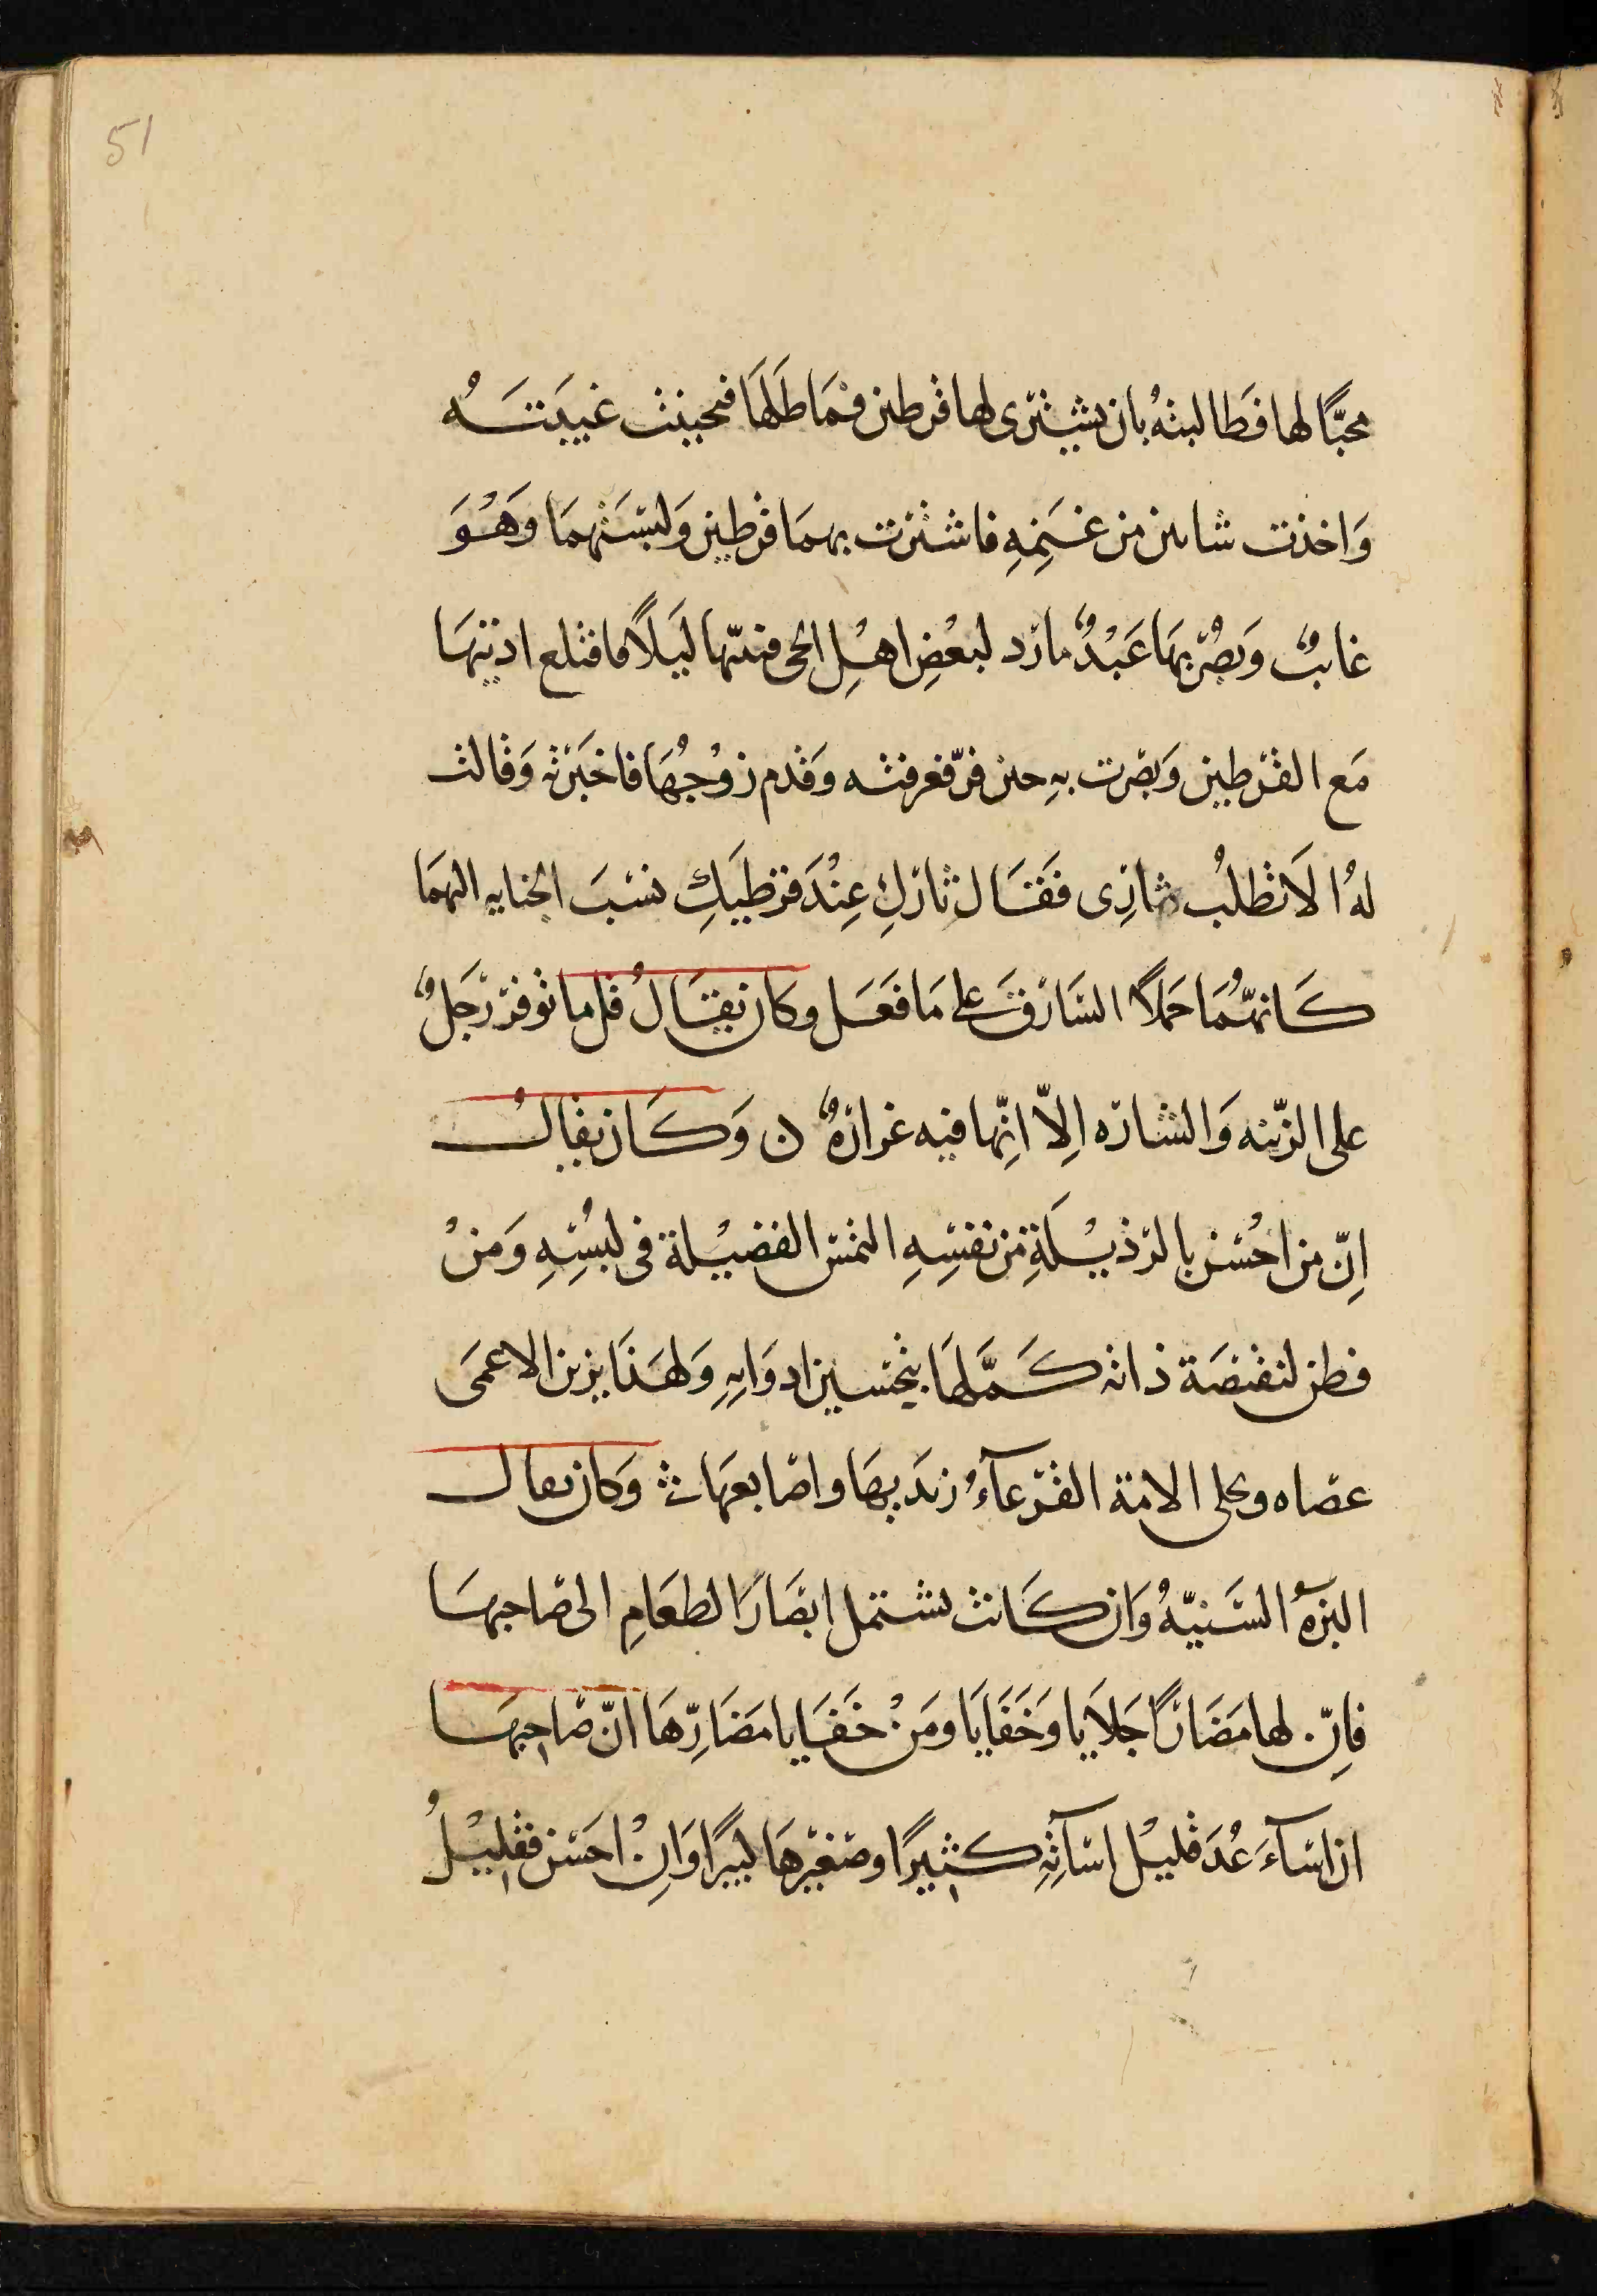 51
محبًّا لها فَطالبتهُ بان يشترى لها قرطين فمَاطَلهَا فتحينت غيبَتَهُ
وَاخذت شاتين من غنَمِهِ فاشترت بهمَا قرطين وَلبسَتْهمَا وَهُوَ
غايبٌ وَبصُر بهَا عَبْدٌ مارد لبعْضِ اهْلِ الحى فبيّتها ليَلاً فاقتلع اذنيهَا
مَع القرطين وَبصُرت بهِ حين فرّ فعرفته وَقدم زوْجُهَا فاخبَرته وَقالت
لهُ الاَ تطْلبُ بثارِى فَقَال ثارُكِ عِنْدَ قرْطيَكِ نسَبَ الجنايه اليهمَا
كَانهُّمَا حَملاَ السَارق عَلى مَا فَعَل وكان يقَالُ قل ما توفر رَجلٌ
على الزّينه وَالشاره اِلاّ اِنّها فيه غرارةٌ ن وَكَان يقالُ
اِنّ من احُسّ بالرّذيْلَةِ مِن نفسِهِ التمسَ الفضيْلة فى لبْسِهِ وَمَنْ
فطن لنقيصَة ذاته كَمَّلهَا بتحسين ادوَاتِهِ وَلهَذَا يزين الاعمَى
عصَاه وتحلى الامة القرعآءُ زندَيهَا واصَابعهَا ۞ وَكان يقال
البزهُ السَنيّهُ وَان كَانت تشتمل ابصَارَ الطعَامِ الى صَاحبهَا
فاِنّ لها مَضَارًّا جَلاَيا وَخَفَايَا ومَنْ خَفَايا مَضَارِّهَا انّ صَاحِبهَا
اذ اسَآءَ عُدَ قليْل اسَآتِهِ كثيرًا وصَغيْرهَا كبيرًا وَاِنْ احسَن فقليْلُ